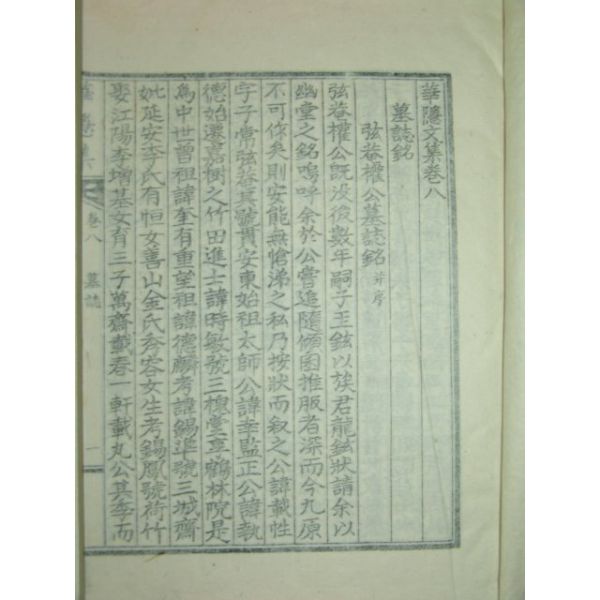 華隱文集卷八
墓誌銘
弦菴權公墓誌銘 并序
弦菴權公既没後數年嗣子王鉉以族君龍鉉狀請余以
幽堂之銘嗚呼余於公嘗追隨傾囷推服者深而今九原
不可作矣則安能無愴涕之私乃按狀而叙之公諱載性
字子常弦菴其號貫安東始祖太師公諱幸監正公諱執
德始還嘉樹之竹田進士諱時敏號三槐堂享鶴林院是
爲中世曾祖諱奎有重望祖諱德麟考諱錫準號三城齋
妣延安李氏有恒女善山金氏秀容女生考錫鳳號荷竹
娶江陽李增基女育三子萬齋載春一軒載丸公其季而
卷八 墓誌 一